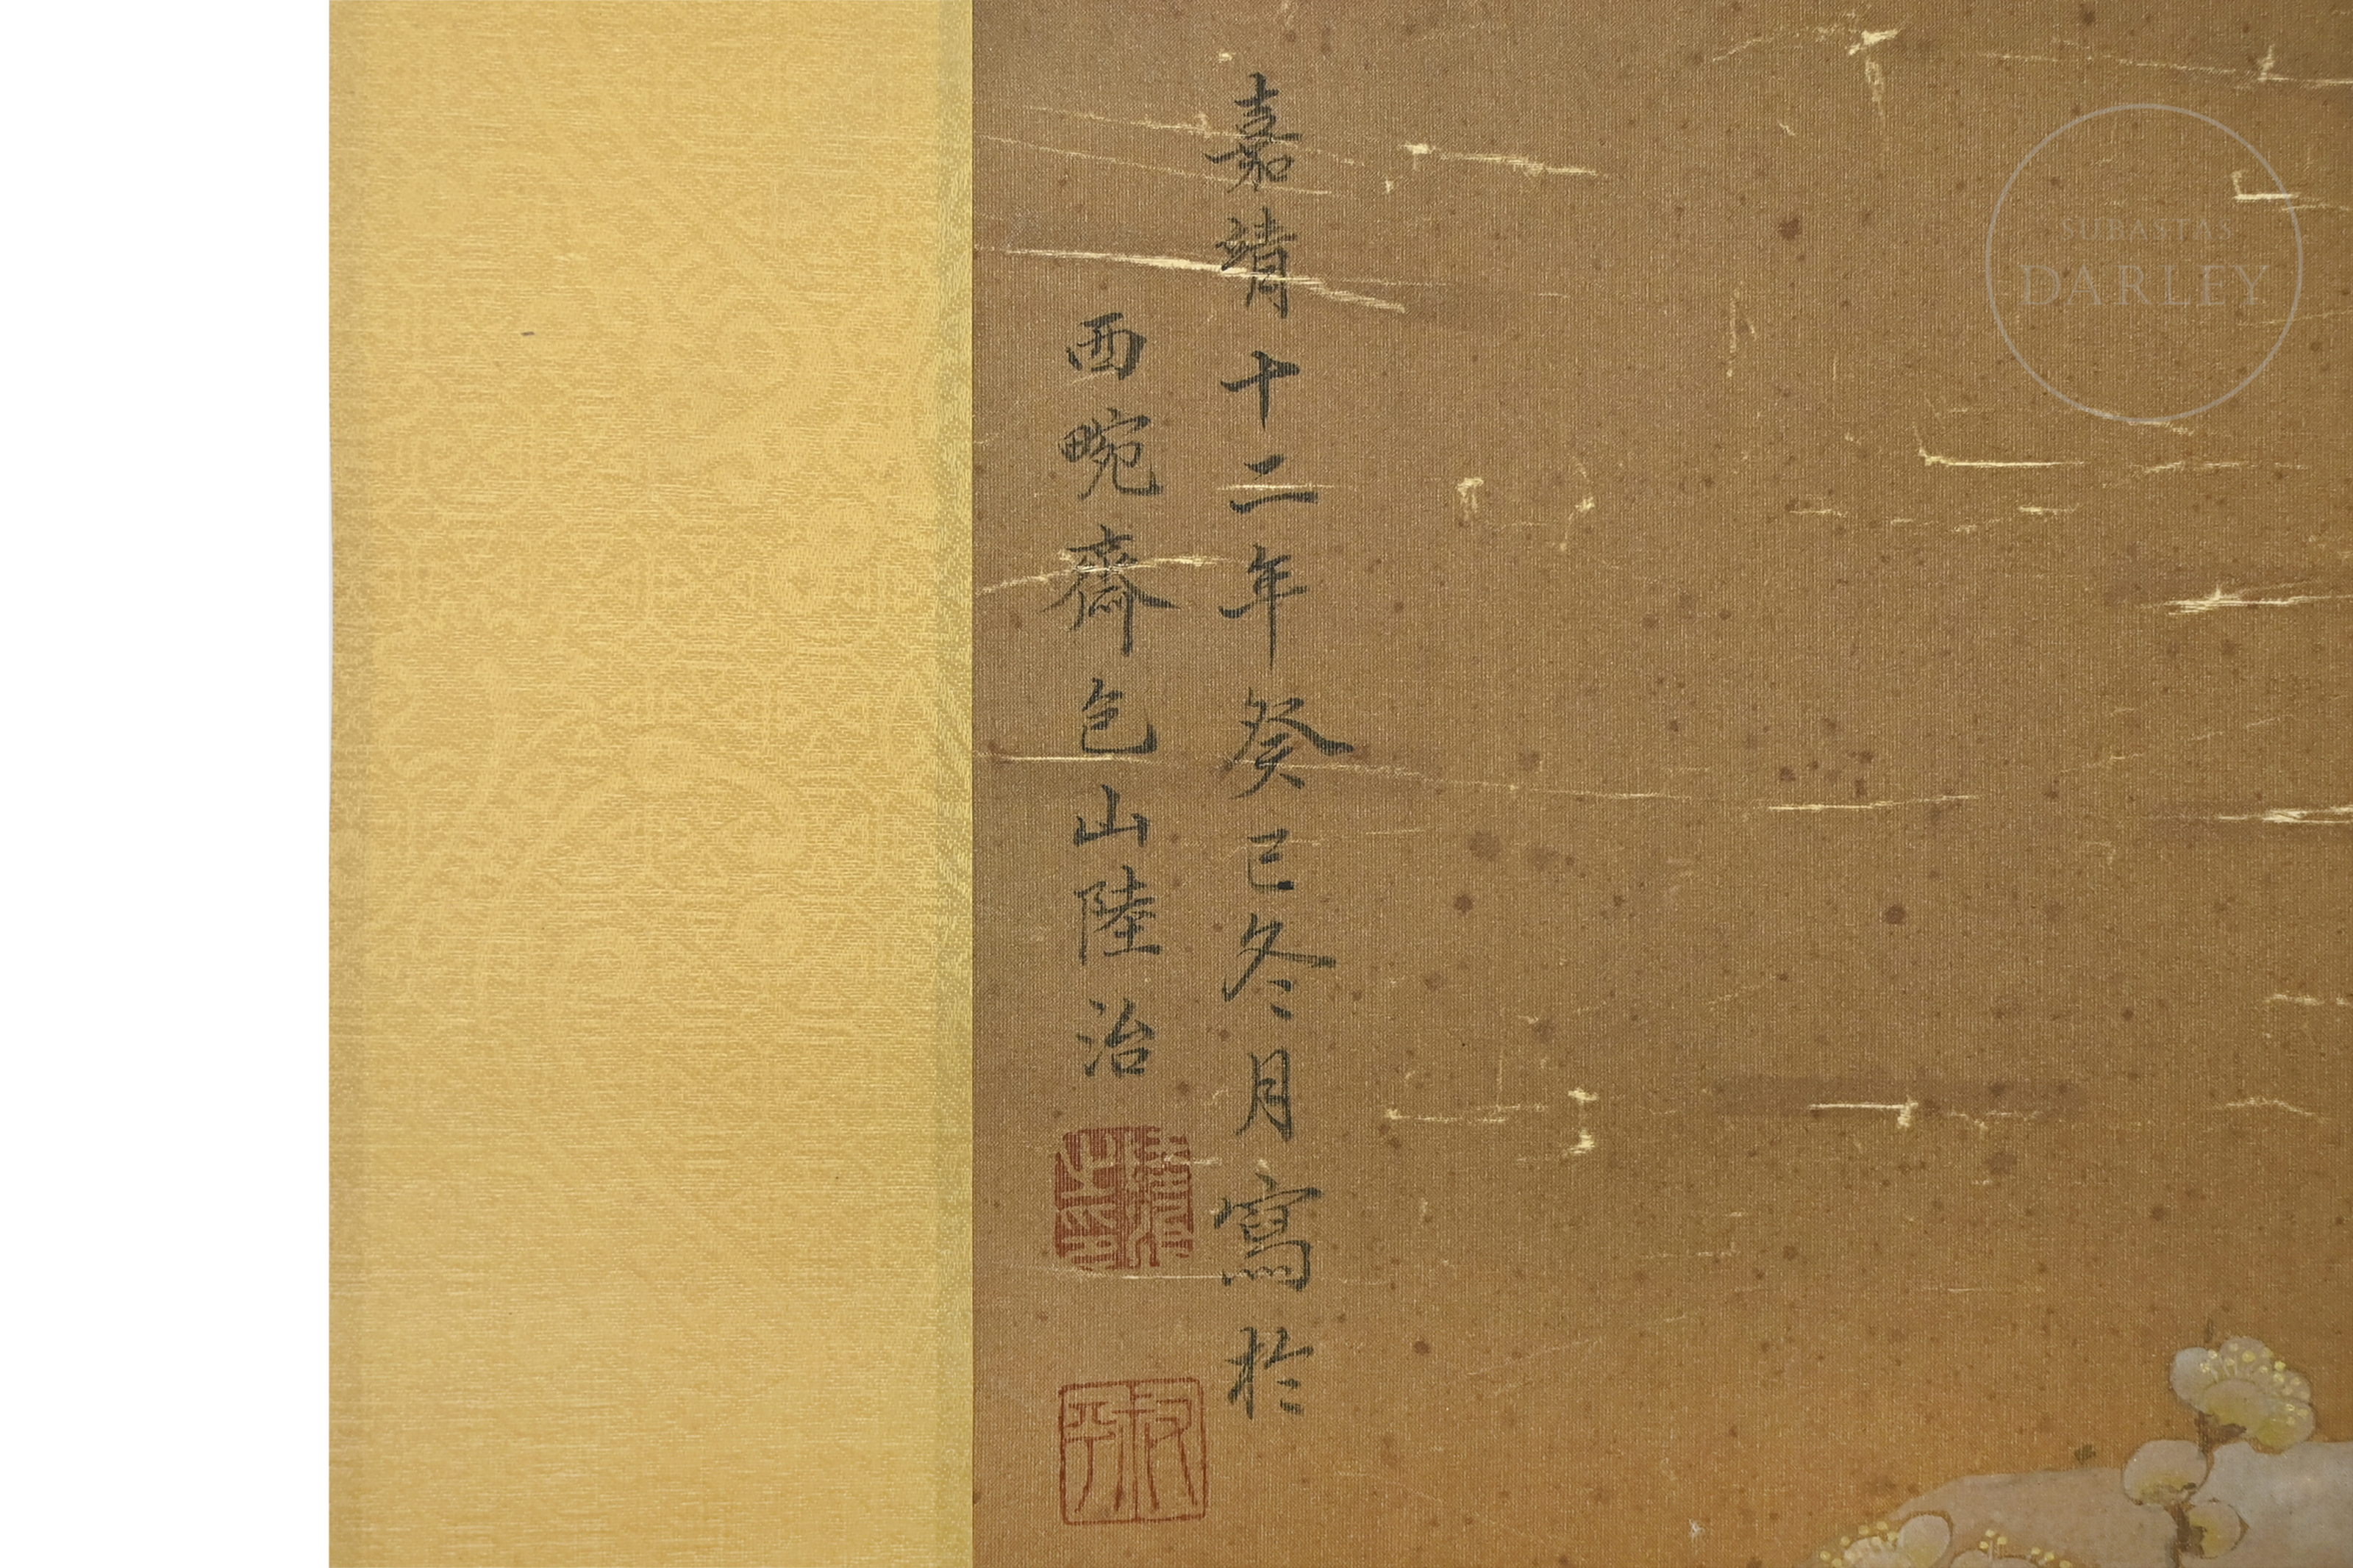 嘉靖十二年癸巳冬月寫於
西畹齋包山陸治
叔平
SUBASTAS
DARLEY